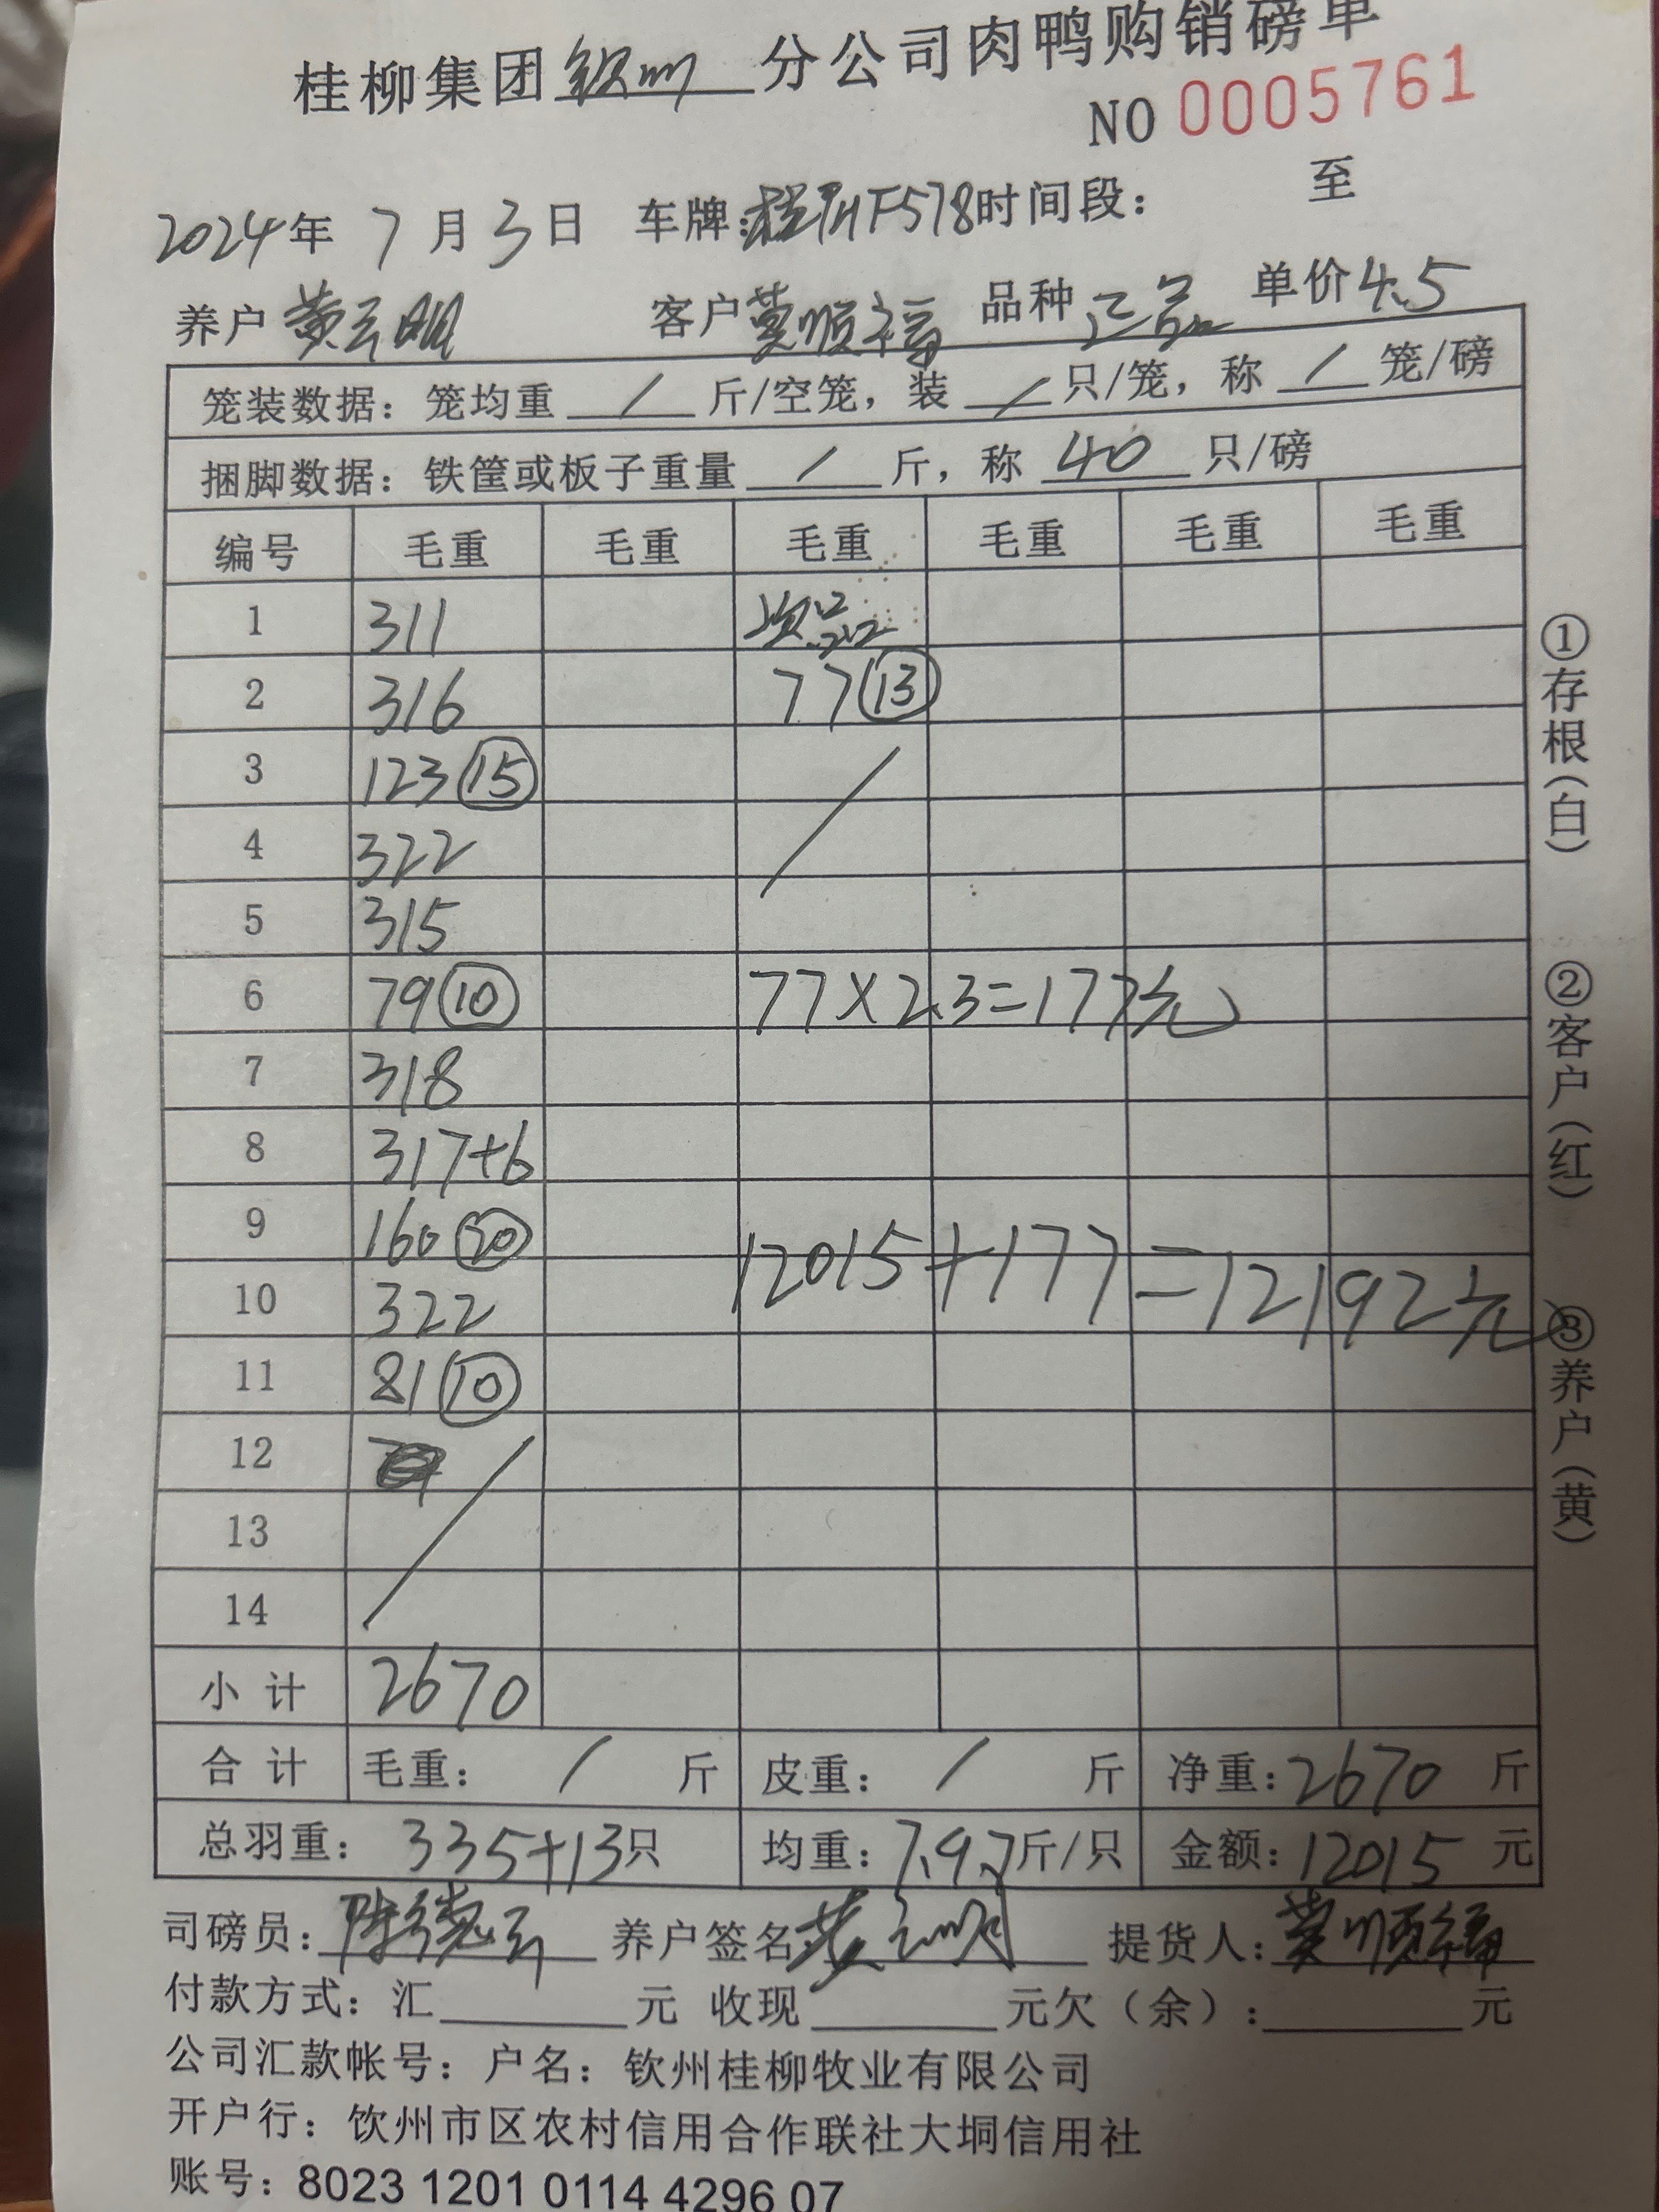 桂柳集团钦州分公司肉鸭购销磅单
NO 0005761
2024年 7月 3日 车牌: F578时间段: 至
养户 黄云明 客户 莫顺福 品种 正品 单价 4.5
笼装数据: 笼均重 / 斤/空笼, 装 / 只/笼, 称 / 笼/磅
捆脚数据: 铁筐或板子重量 / 斤, 称 40 只/磅
编号 毛重 毛重 毛重 毛重 毛重 毛重
1 311 次品
2 316 77⑬
3 123⑮ /
4 322
5 315
6 79⑩ 77×2.3=177元
7 318
8 317+6
9 160⑳
10 322 12015+177=12192元
11 81⑩
12
13 /
14
小计 2670
合计 毛重: / 斤 皮重: / 斤 净重: 2670 斤
总羽重: 335+13只 均重: 7.97斤/只 金额: 12015 元
司磅员: 陈德云 养户签名 黄云明 提货人: 莫顺福
付款方式: 汇 元 收现 元欠(余): 元
公司汇款帐号: 户名: 钦州桂柳牧业有限公司
开户行: 钦州市区农村信用合作联社大垌信用社
账号: 8023 1201 0114 4296 07
①存根(白) ②客户(红) ③养户(黄)